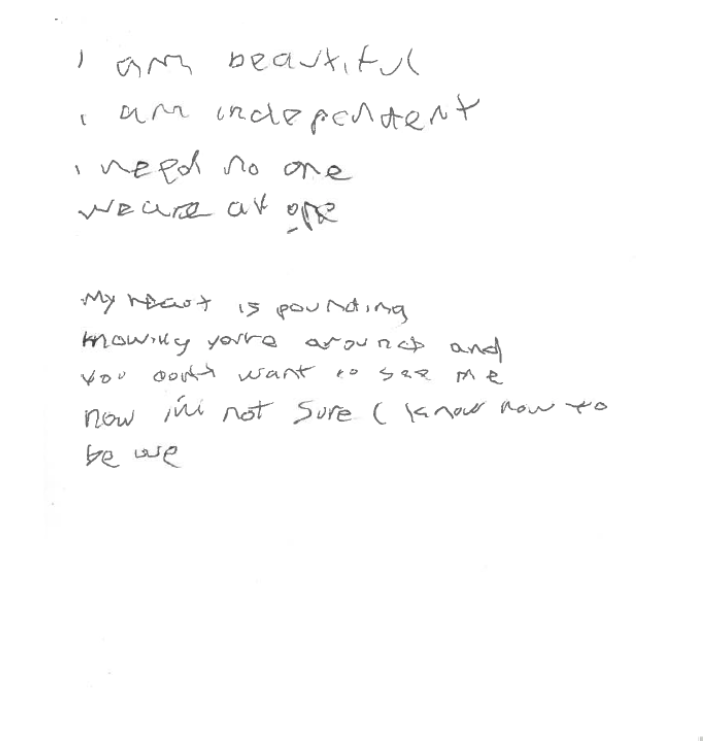 i am beautiful
i am independent
i need no one
we are at one
My heart is pounding
knowing you're around and
you don't want to see me
now i'm not sure i know how to
be we